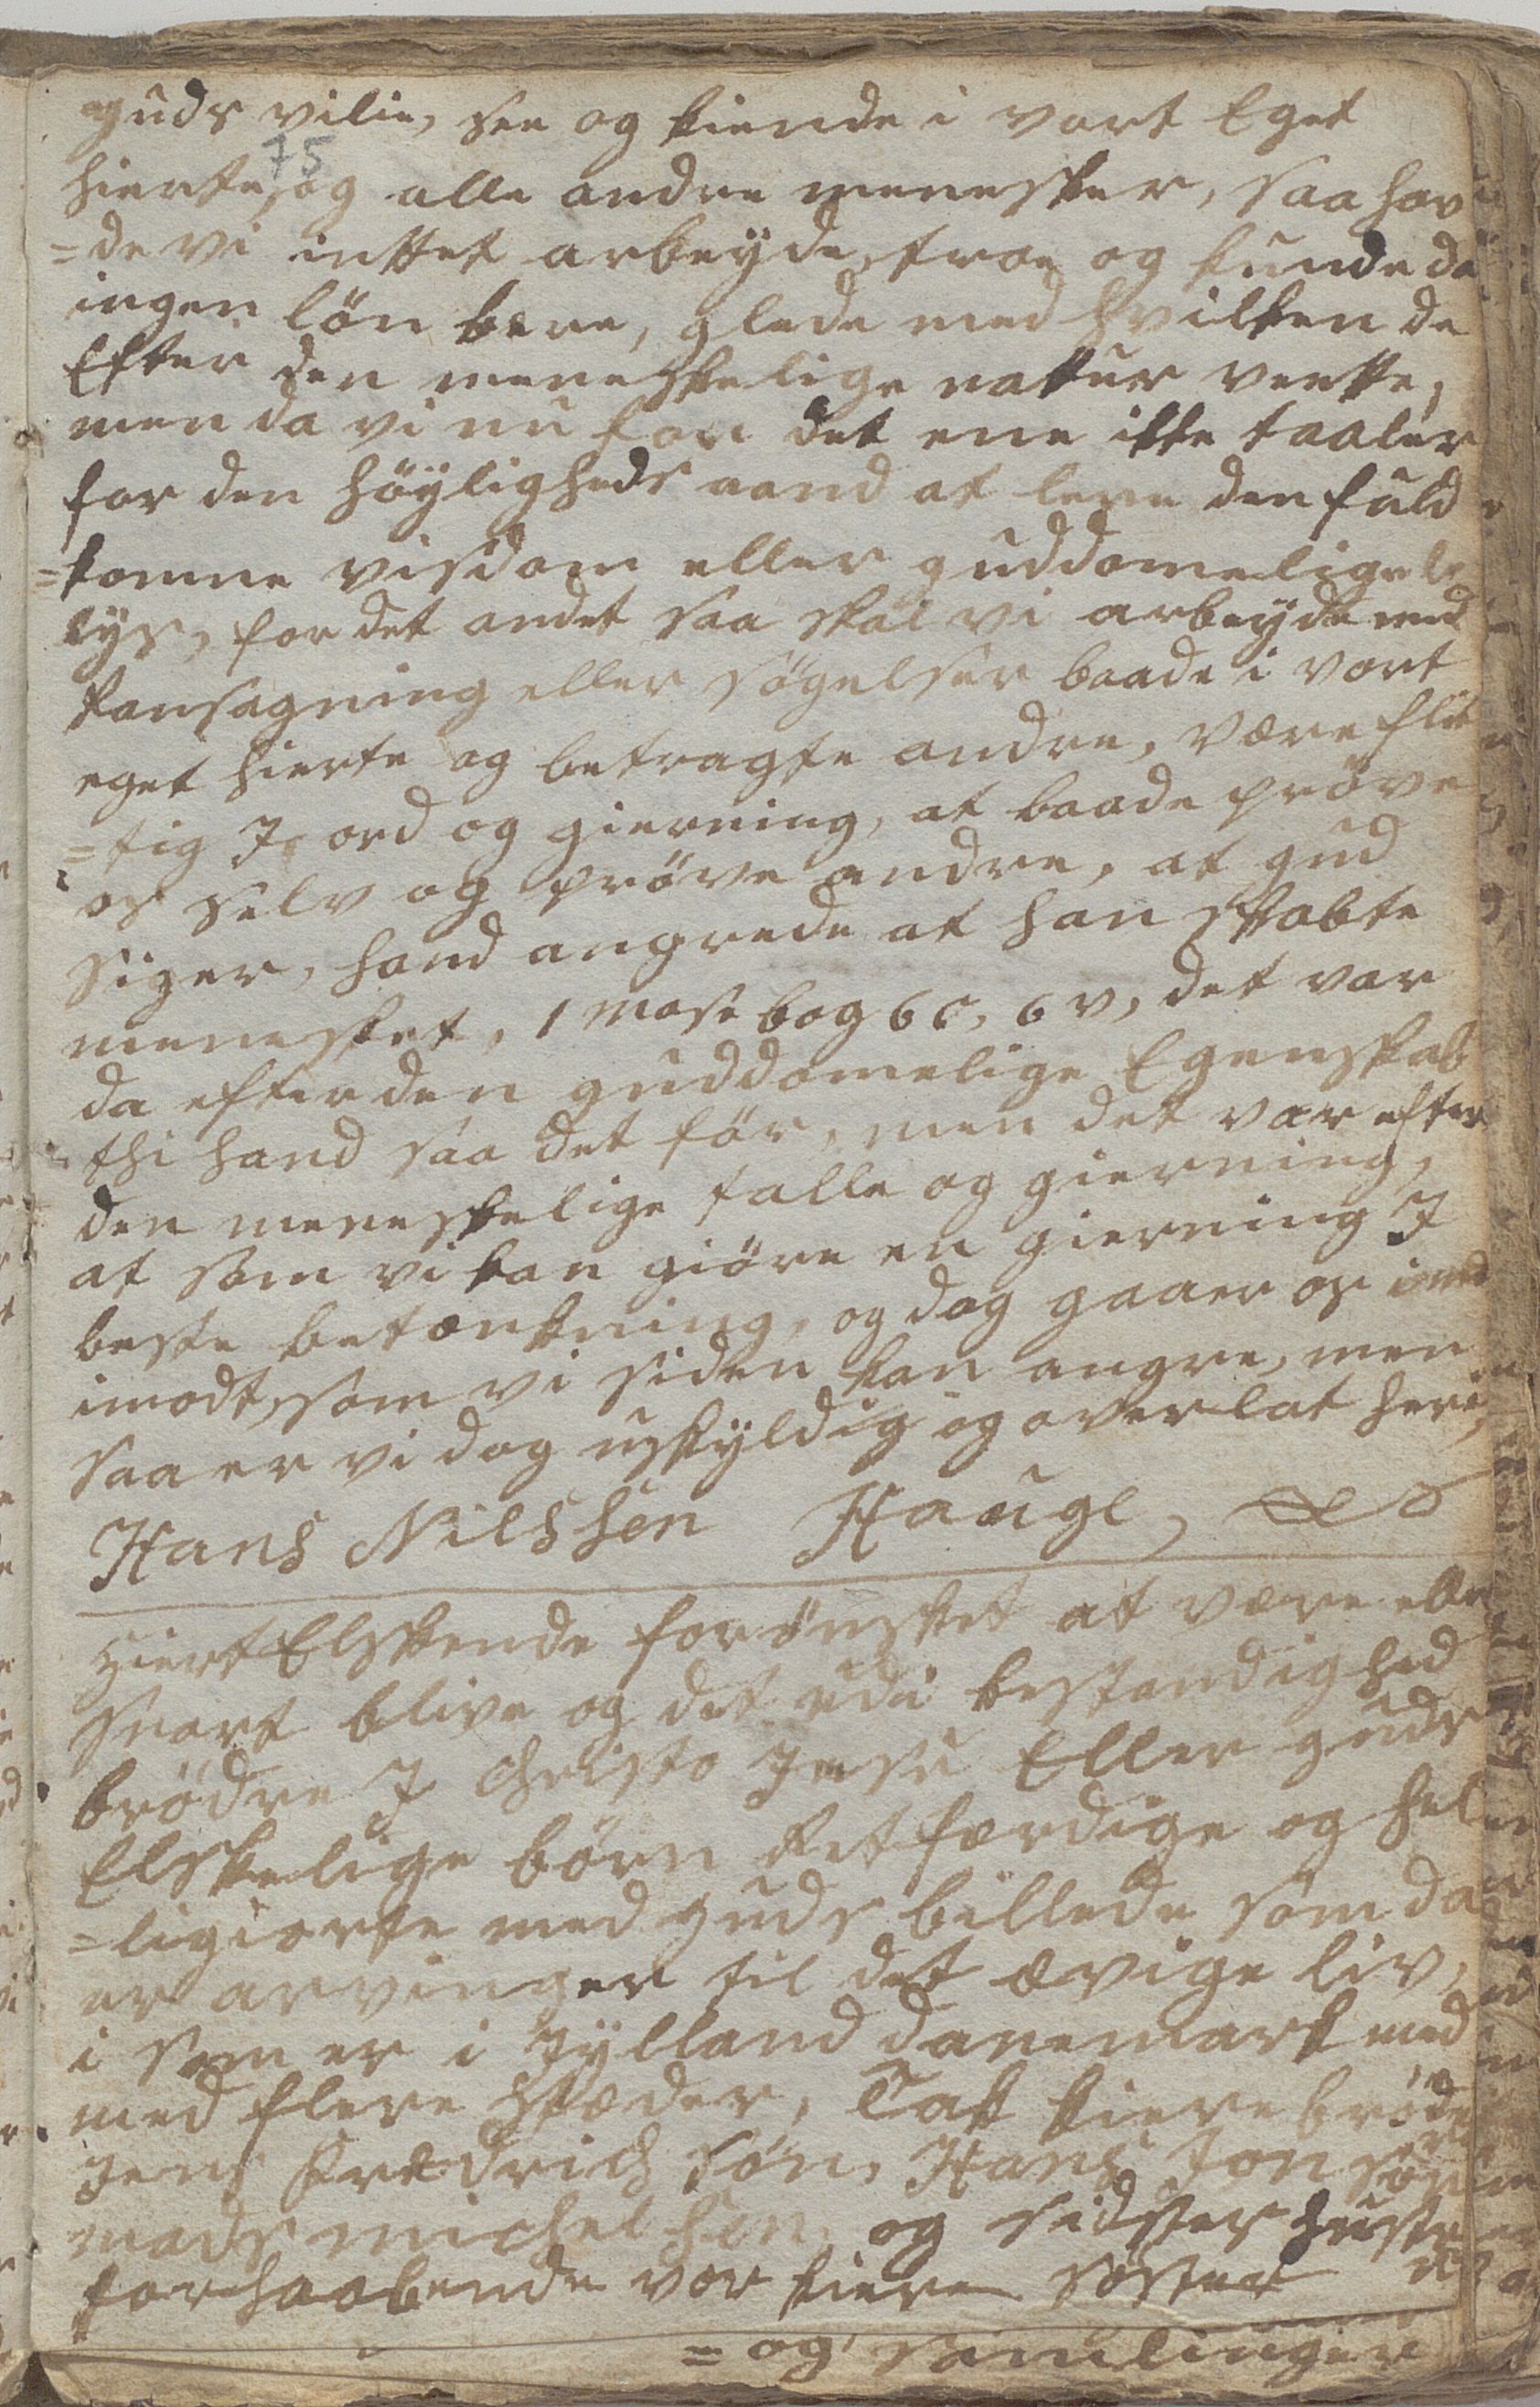 guds vilie, see og kiende i vort Eget
75
hierte, og alle andre menesker, saa hav
=de vi inttet arbeyde, troe og kunde da
ingen lön bære, glede med hvilken de
Efter den meneskelige nattur ventte,
men da vi nu for det ene ikke taaler
for den höyligheds aand at lere den fuld
=komne visdom eller guddomelige le
lys, for det andet saa skal vi arbeyde med
Ransagning eller sögelser baade i vort
eget hierte og betragte andre, være flit
=tig I ord og gierning, at baade pröve
os selv og pröve andre, at gud
siger, hand angrede at han skabte
mennesket, 1 Mose bog 6 C, 6 v, det var
da efter den guddomelige Egenskab
thi hand saa det för, men det var efter
den meneskelige talle og gierning,
at som vi kan giöre en gierning I
beste betænkning, og dog gaaer os
imodt, som vi siden kan angre, men
saa er vi dog uskyldig og overlat heri,
Hans Nilshen Hauge,
Hiert Elskende forönsket at være eller
snart blive og det udi bestandighed
brödre I Christo Jesu Eller guds
Elskelige börn Retfærdige og hel
=ligiorte med guds billede som da
er arvinger til det ævige liv,
i som er i Jylland danemark med
med flere stæder, Tak kiere bröder
Jens Fredrich sön, Hans Jon sön
mads michel sön, og sidster
forhaabende vor kiere söster
=og samlinger